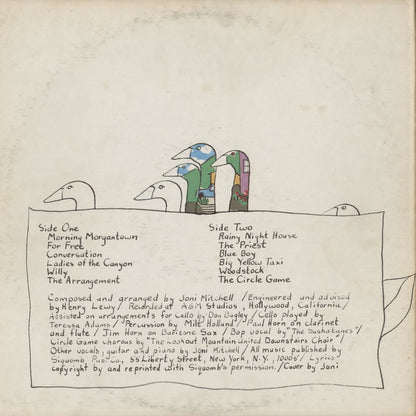 Side One
Morning Morgantown
For Free
Conversation
Ladies of the Canyon
Willy
The Arrangement
Side Two
Rainy Night House
The Priest
Blue Boy
Big Yellow Taxi
Woodstock
The Circle Game
Composed and arranged by Joni Mitchell / Engineered and advised
by Henry Lewy / Recorded at A&M Studios, Hollywood, California /
Assisted on arrangements for Cello by Don Bagley / Cello played by
Teressa Adams / Percussion by Milt Holland / Paul Horn on Clarinet
and flute / Jim Horn on Baritone Sax / Bop vocal by "The Saskatunes" /
Circle Game chorus by "The Lookout Mountain United Downstairs Choir" /
Other vocals, guitar and piano by Joni Mitchell / All music published by
Siquomb, Pub. Co., 55 Liberty Street, New York, N.Y., 10005 / Lyrics
copyright by and reprinted with Siquomb's permission. / Cover by Joni